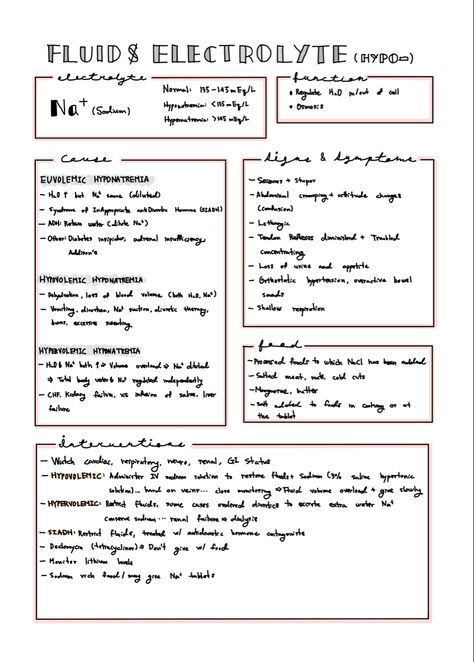 FLUID & ELECTROLYTE (HYPO-)
electrolyte
Na+ (Sodium)
Normal: 135 - 145 mEq/L
Hyponatremia: <135 mEq/L
Hypernatremia: >145 mEq/L
function
• Regulate H2O in/out of cell
• Osmosis
Cause
EUVOLEMIC HYPONATREMIA
- H2O ↑ but Na+ same (diluted)
- Syndrome of Inappropriate antiDiuretic Hormone (SIADH)
- ADH: Retain water (dilute Na+)
- Other: Diabetes insipidus, adrenal insufficiency,
Addison's
HYPOVOLEMIC HYPONATREMIA
- Dehydration, loss of blood volume (both H2O, Na+)
- Vomiting, diarrhea, NG suction, diuretic therapy,
burns, excessive sweating
HYPERVOLEMIC HYPONATREMIA
- H2O & Na+ both ↑ ⇒ Volume overload ⇒ Na+ diluted
⇒ Total body water & Na+ regulated independently
- CHF, Kidney failure, infusion of saline, liver
failure
Signs & Symptoms
- Seizures + Stupor
- Abdominal cramping + attitude changes
(confusion)
- Lethargic
- Tendon Reflexes diminished + Troubled
concentrating
- Loss of urine and appetite
- Orthostatic hypertension, overactive bowel
sounds
- Shallow respiration
food
- Processed foods to which NaCl has been added
- Salted meat, nuts, cold cuts
- Margarine, butter
- Salt added to foods in cooking or at
the table
Interventions
- Watch cardiac, respiratory, neuro, renal, GI Status
- HYPOVOLEMIC: Administer IV sodium solution to restore fluids + Sodium (3% saline hypertonic
solution)... hard on veins... close monitoring ⇒ Fluid volume overload + give slowly
- HYPERVOLEMIC: Restrict fluids, some cases ordered diuretics to excrete extra water Na+
conserve sodium... renal failure ⇒ dialysis
- SIADH: Restrict fluids, treated w/ antidiuretic hormone antagonists
- Declomycin (tetracycline) ⇒ Don't give w/ food
- Monitor lithium levels
- Sodium rich food / may give Na+ tablets